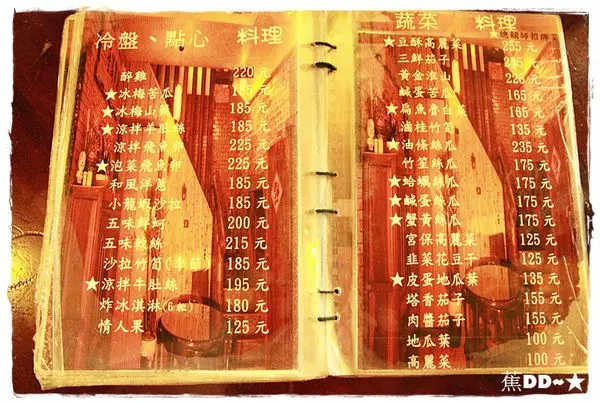 冷盤、點心 料理
醉雞 220元
★冰梅苦瓜 185元
★冰梅山藥 185元
★涼拌羊肚絲 225元
涼拌飛魚卵 225元
★泡菜飛魚卵 225元
和風洋蔥 185元
小龍蝦沙拉 185元
五味鮮蚵 200元
五味軟絲 215元
沙拉竹筍(季節) 185元
★涼拌牛肚絲 195元
炸冰淇淋(6粒) 180元
情人果 125元
蔬菜 料理
★總鋪師招牌菜
★豆酥高麗菜 255元
三鮮茄子 元
黃金淮山 225元
★鹹蛋苦瓜 165元
★扁魚魯白菜 165元
滷桂竹筍 135元
★油條絲瓜 235元
竹笙絲瓜 175元
★蛤蠣絲瓜 175元
★鹹蛋絲瓜 175元
★蟹黃絲瓜 175元
宮保高麗菜 125元
韭菜花豆干 125元
★皮蛋地瓜葉 135元
塔香茄子 155元
肉醬茄子 155元
地瓜葉 100元
高麗菜 100元
蕉DD~★